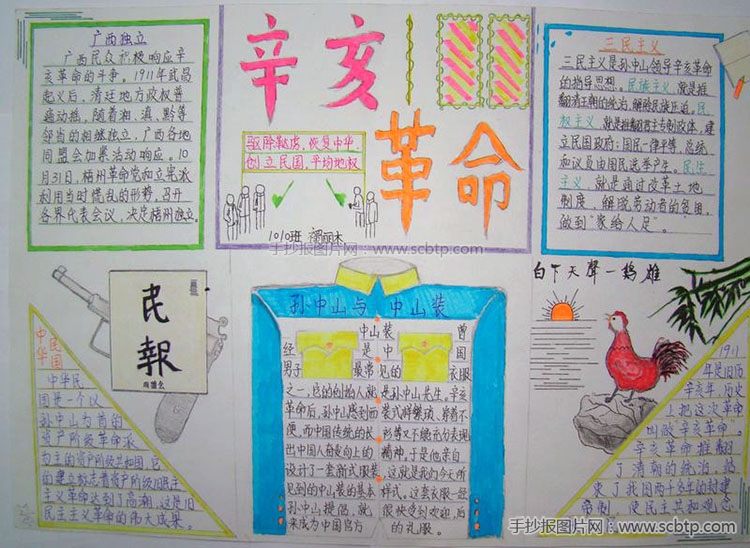 广西独立
广西民众积极响应辛
亥革命的斗争。1911年武昌
起义后，清廷地方政权普
遍动摇，随着湘、滇、黔等
邻省的相继独立，广西各地
同盟会加紧活动响应。10
月31日，梧州革命党和立宪派
利用当时慌乱的形势，召开
各界代表会议，决定梧州独立。
辛亥
革命
驱除鞑虏，恢复中华，
创立民国，平均地权
1010班
手抄报图片网：www.scbtp.com
三民主义
三民主义是孙中山领导辛亥革命
的指导思想。民族主义，就是推
翻清王朝的统治，解除民族压迫。民
权主义，就是推翻君主专制政体，建
立民国政府；国民一律平等，总统
和议员由国民选举产生。民生
主义，就是通过改革土地
制度，解脱劳动者的贫困，
做到“家给人足”。
民
報
中华民国
中华民
国是一个以
孙中山为首的
资产阶级革命派
为主的资产阶级共和国，它
的建立标志着资产阶级旧民主
主义革命达到了高潮，这是旧
民主主义革命的伟大成果。
孙中山与中山装
中山装曾
经是中国
男子最常见的衣服
之一，它的创始人就是孙中山先生。辛亥
革命后，孙中山感到西装式样繁琐，穿着不
便，而中国传统的长衫等又不能充分表现
出中国人奋发向上的精神，于是他亲自
设计了一套新式服装，这就是我们今天所
见到的中山装的基本样式，这套衣服一经
孙中山提倡，就很快受到欢迎，后
来成为中国官方的礼服。
白下天聲一鹤雄
1911
年是旧历
辛亥年，历史
上把这次革命
叫做“辛亥革命”。
辛亥革命推翻
了清朝的统治，结
束了我国两千多年的封建
帝制，使民主共和观念
手抄报图片网：www.scbtp.com